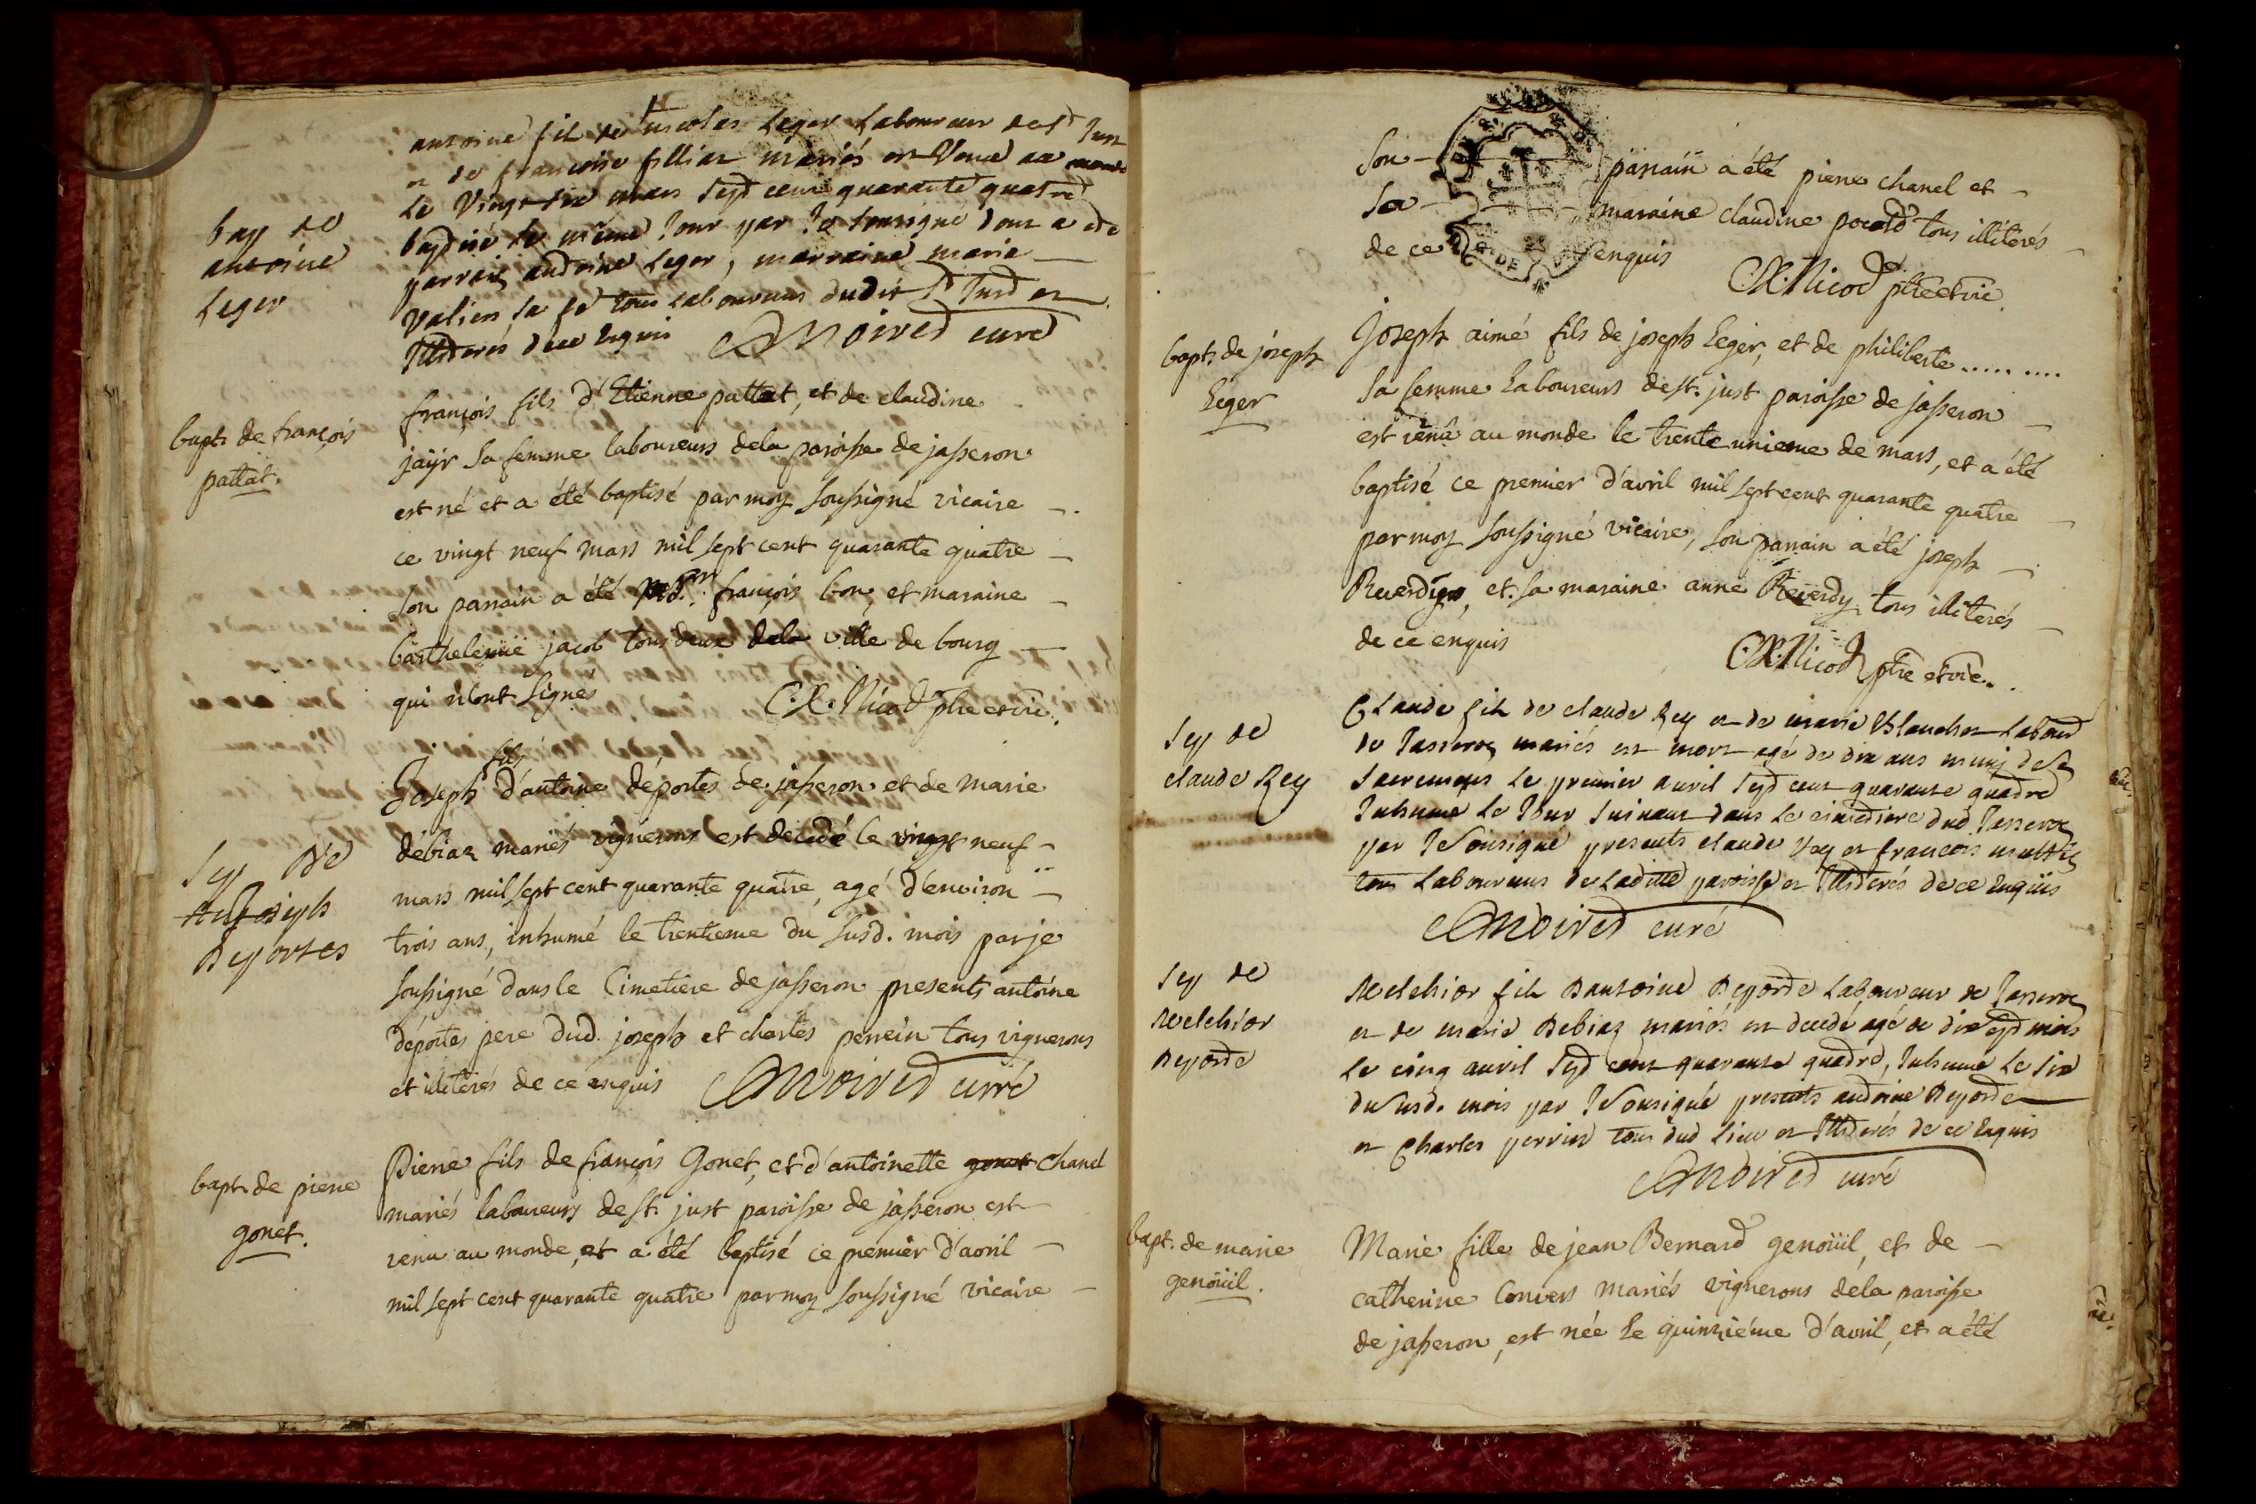 bap de
antoine
Leger
antoine fil de nicolas Leger Laboureur de st Just
et de francoise filliar mariés est venu au monde
Le vingt six mars sept cent quarante quatre
baptisé le même Jour par Je soussigné dont a été
parrain antoine Leger, marraine marie
valien sa fe tous Laboureurs dudit st Just et
Illiterés dece enquis Moiret curé
bapt. de françois
pattat.
françois fils d'Etienne pattat, et de claudine
jaÿr sa femme laboureurs dela paroisse de jasseron
est né et a été baptisé par moy soussigné vicaire
ce vingt neuf mars mil sept cent quarante quatre
son parrain a été françois bon, et maraine
barthelemie jacob tous deux dela ville de bourg
qui n'ont signés C.X. Nicod ptre et vic.
sep de
Joseph
Deportes
Joseph fils d'antoine déportes de jasseron et de marie
débiaz mariés vignerons est decedé le vingt neuf
mars mil sept cent quarante quatre, agé d'environ
trois ans, inhumé le trentieme du susd. mois par je
soussigné dans le Cimetiere de jasseron presents antoine
déportes pere dud. joseph et charles perrein tous vignerons
et illiterés de ce enquis Moiret curé
bapt. de pierre
gonet.
Pierre fils de françois Gonet, et d'antoinette gonet chanel
mariés laboureurs de st. just paroisse de jasseron est
venu au monde, et a été baptisé ce premier d'avril
mil sept cent quarante quatre par moy soussigné vicaire
son parrain a été pierre chanel et
sa maraine claudine pocard tous illiterés
de ce enquis
C.X. Nicod ptre et vic.
bapt. de joseph
Leger
Joseph aimé fils de joseph Leger, et de philiberte .........
sa femme Laboureurs de st. just paroisse de jasseron
est venu au monde le trente unieme de mars, et a été
baptisé ce premier d'avril mil sept cent quarante quatre
par moy soussigné vicaire, son parrain a été joseph
Reverdy, et sa maraine anne Reverdy tous illiterés
de ce enquis
C.X. Nicod ptre et vic.
sep de
claude Rey
Claude fil de claude Rey et de marie Blanchet Labour
de Jasseron mariés est mort agé de dix ans muny de Se
Sacremens Le premier avril sept cent quarante quatre
Inhumé Le Jour suivant dans Le cimetiere dud Jasseron
par Je sousigné presents claude Vey et francois
tous Laboureurs de Laditte paroisse et Illiterés de ce Enquis
Moiret curé
sep de
Melchior
Deporte
Melchior fil Dantoine Deporte Laboureur de Jasseron
et de marie Debiaz mariés est decedé agé de dix sept mois
Le cinq avril sept cent quarante quatre, Inhumé Le six
du susd. mois par Je sousigné presents antoine Deporte
et Charles perrin tous dud Lieu et Illiterés de ce Enquis
Moiret curé
bapt. de marie
genoüil.
Marie fille de jean Bernard genoüil, et de
catherine Convers mariés vignerons dela paroisse
de jasseron, est née le quinziéme d'avril, et a été